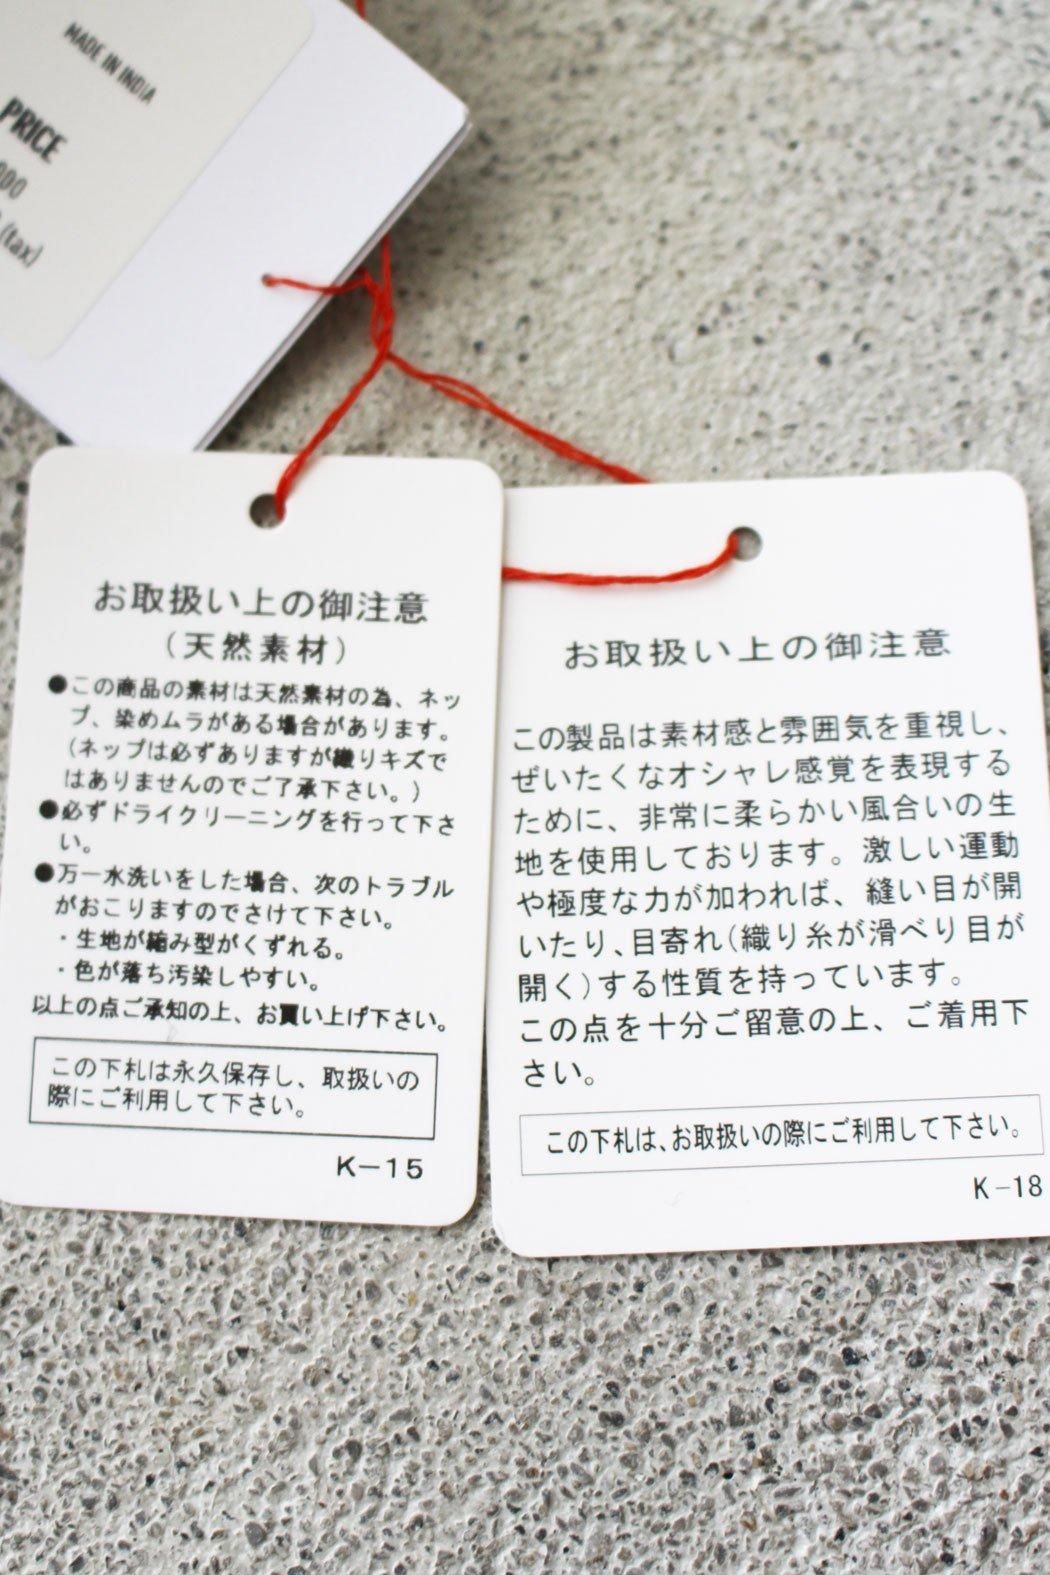 MADE IN INDIA
PRICE
000
(tax)
お取扱い上の御注意
(天然素材)
●この商品の素材は天然素材の為、ネッ
プ、染めムラがある場合があります。
(ネップは必ずありますが織りキズで
はありませんのでご了承下さい。)
●必ずドライクリーニングを行って下さ
い。
●万一水洗いをした場合、次のトラブル
がおこりますのでさけて下さい。
・生地が縮み型がくずれる。
・色が落ち汚染しやすい。
以上の点ご承知の上、お買い上げ下さい。
この下札は永久保存し、取扱いの
際にご利用して下さい。
K-15
お取扱い上の御注意
この製品は素材感と雰囲気を重視し、
ぜいたくなオシャレ感覚を表現する
ために、非常に柔らかい風合いの生
地を使用しております。激しい運動
や極度な力が加われば、縫い目が開
いたり、目寄れ(織り糸が滑べり目が
開く)する性質を持っています。
この点を十分ご留意の上、ご着用下
さい。
この下札は、お取扱いの際にご利用して下さい。
K-18